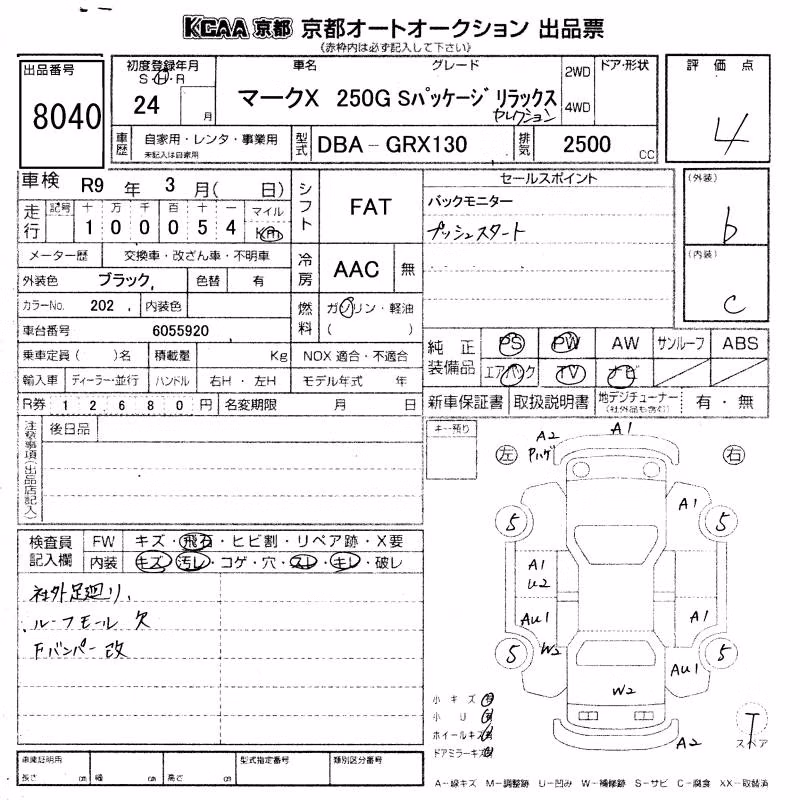 KCAA 京都 京都オートオークション 出品票
(赤枠内は必ず記入して下さい)
出品番号
8040
初度登録年月
S・H・R
24 月
車名 グレード
マークX 250G Sパッケージ リラックス
セレクション
2WD
4WD
ドア・形状
評価点
4
車歴
自家用・レンタ・事業用
未記入は自家用
型式
DBA-GRX130
排気
2500 CC
車検 R9 年 3 月( 日)
走行
記号 十 万 千 百 十 一 マイル
1 0 0 0 5 4 Km
メーター歴 交換車・改ざん車・不明車
外装色 ブラック 色替 有
カラーNo. 202 内装色
車台番号 6055920
乗車定員( )名 積載量 Kg
輸入車 ディーラー・並行 ハンドル 右H・左H
R券 1 2 6 8 0 円 名変期限 月 日
シフト
FAT
冷房
AAC 無
燃料
ガソリン・軽油
( )
NOX 適合・不適合
モデル年式 年
セールスポイント
バックモニター
プッシュスタート
(外装)
b
(内装)
c
純正装備品
PS PW AW サンルーフ ABS
エアバック TV ナビ
新車保証書 取扱説明書 地デジチューナー
(社外品も含む)
有・無
注意事項(出品店記入)
後日品
キー預り
左
右
A2
Pハゲ
A1
A1
5
5
A1
U2
AU1
A1
5
5
W2
AU1
W2
A2
T
スペア
検査員記入欄
FW キズ・飛石・ヒビ割・リペア跡・X要
内装 キズ・汚レ・コゲ・穴・スレ・キレ・破レ
社外足廻り
ルーフモール 欠
Fバンパー 改
小キズ 有
小U 有
ホイールキズ 有
ドアミラーキズ 有
車庫証明用
長さ cm 幅 cm 高さ cm
型式指定番号
類別区分番号
A-線キズ M-調整跡 U-凹み W-補修跡 S-サビ C-腐食 XX-取替済